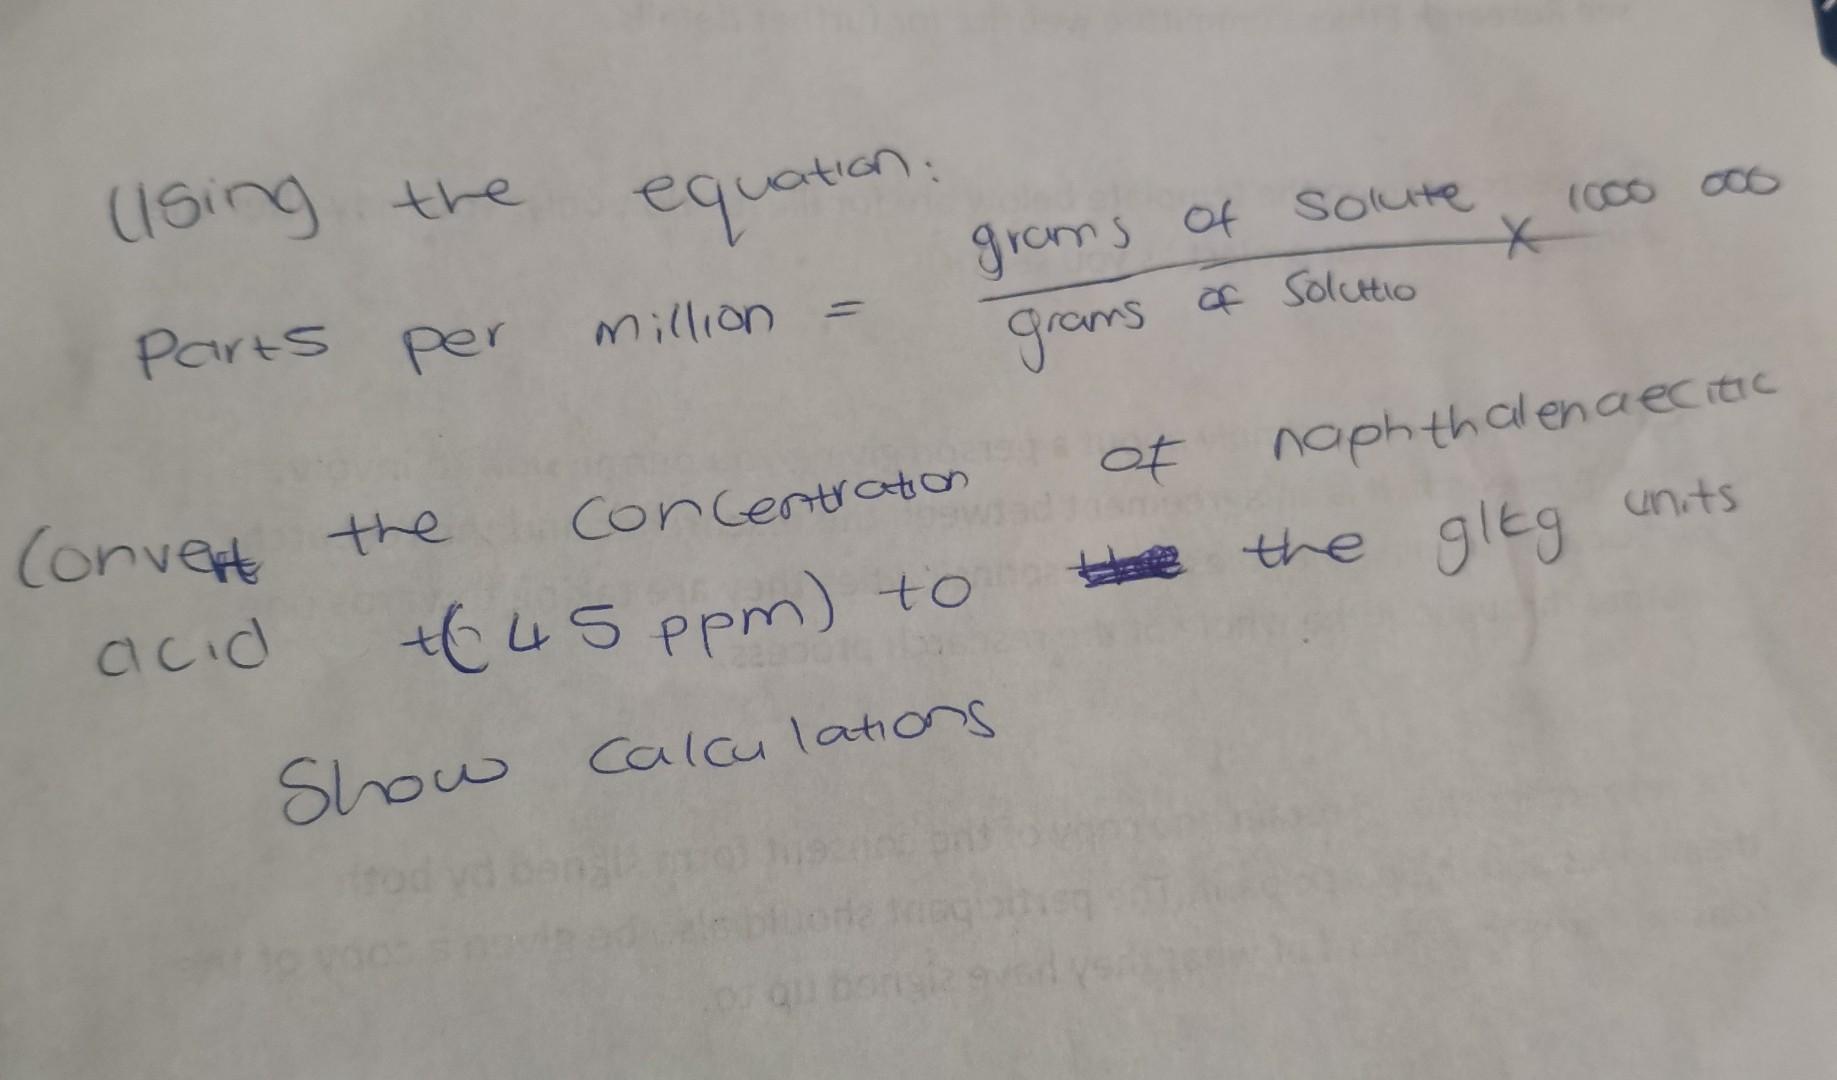 Using the equation:
Parts per million = grams of solute x 1000 000
grams of Solutio
Convert the concentration of naphthalenaecitic
acid (45 ppm) to the g/kg units
Show calculations